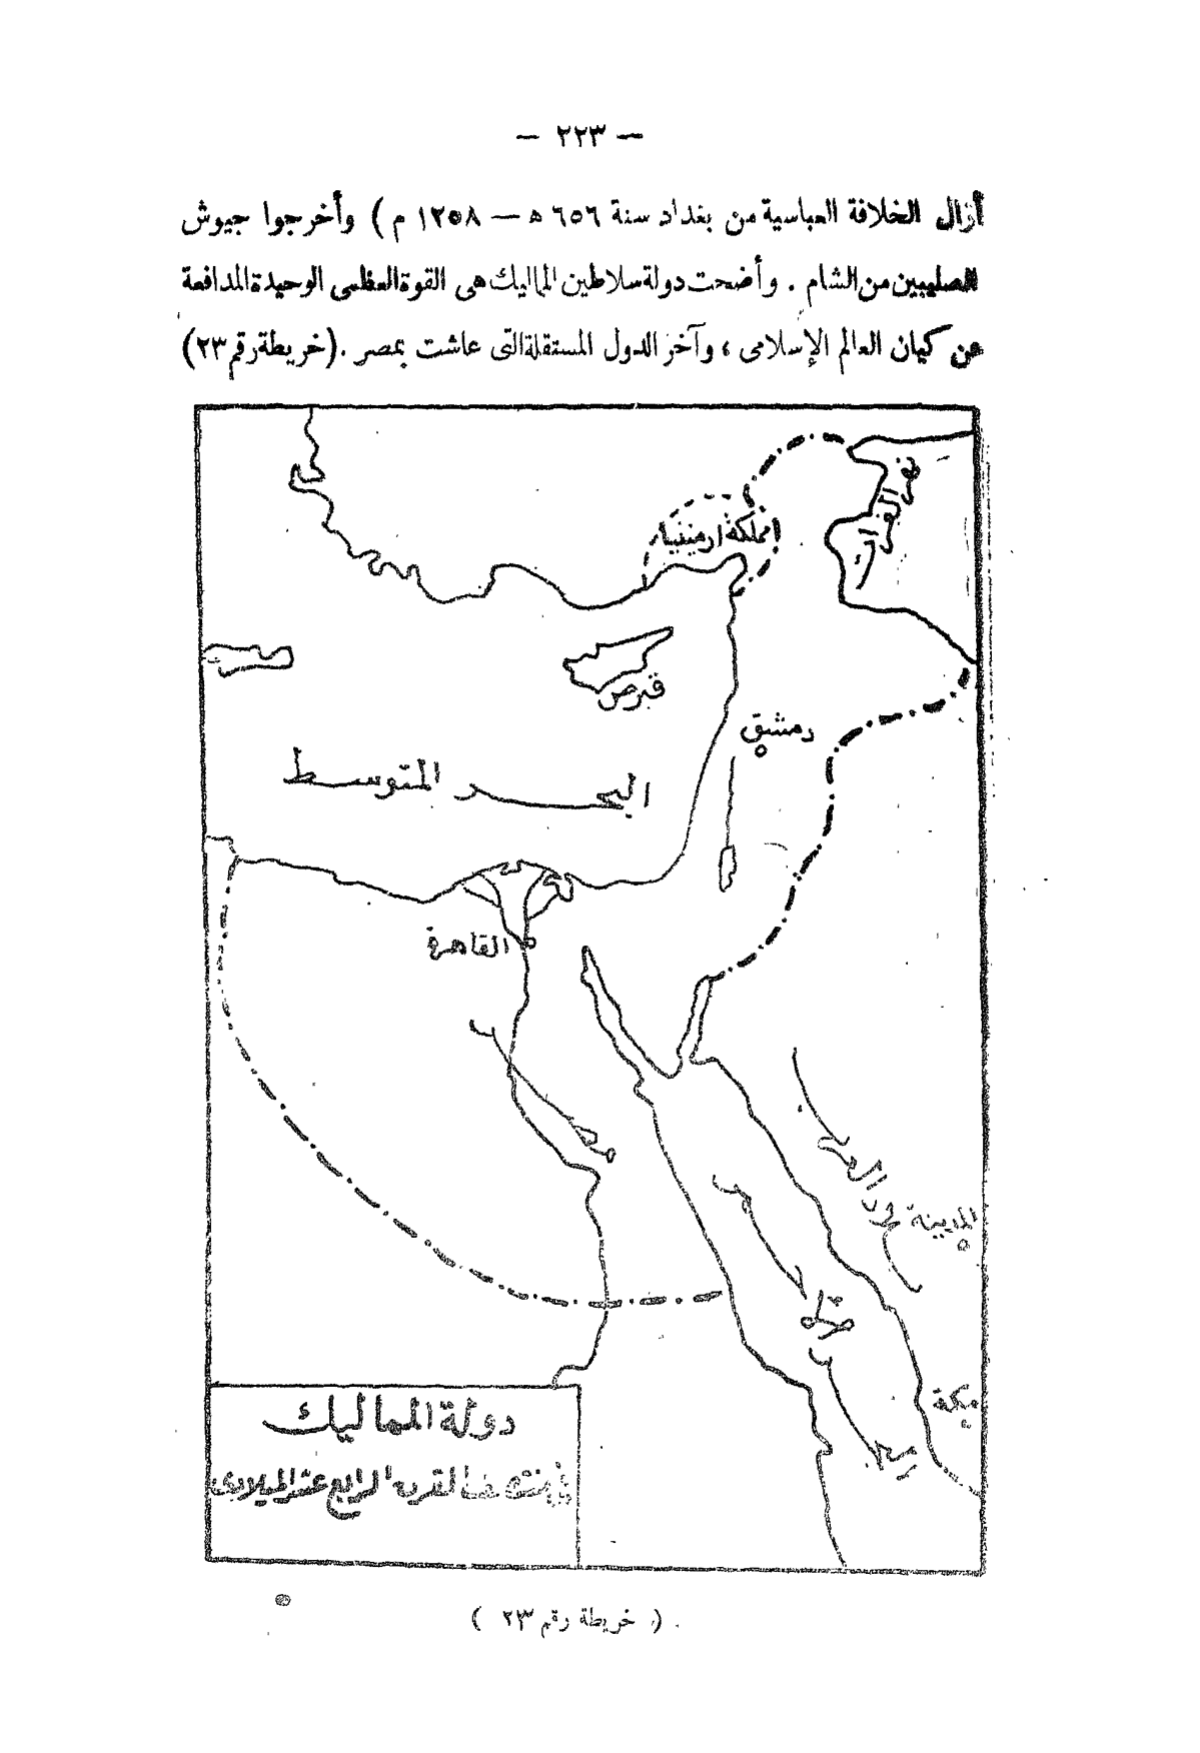 — ٢٢٣ —
أزال الخلافة العباسية من بغداد سنة ٦٥٦ ه — ١٢٥٨ م ) وأخرجوا جيوش
الصليبين من الشام . وأضحت دولة سلاطين المماليك هى القوة العظمى الوحيدة المدافعة
عن كيان العالم الإسلامى ، وآخر الدول المستقلة التى عاشت بمصر . (خريطة رقم ٢٣)
نهر الفرات
مملكة ارمينيا
قبرص
دمشق
البحر المتوسط
القاهرة
مصر
بلاد العرب
المدينة
البحر
مكة
دولة المماليك
منتصف القرن الرابع عشر الميلادى
( خريطة رقم ٢٣ ) .